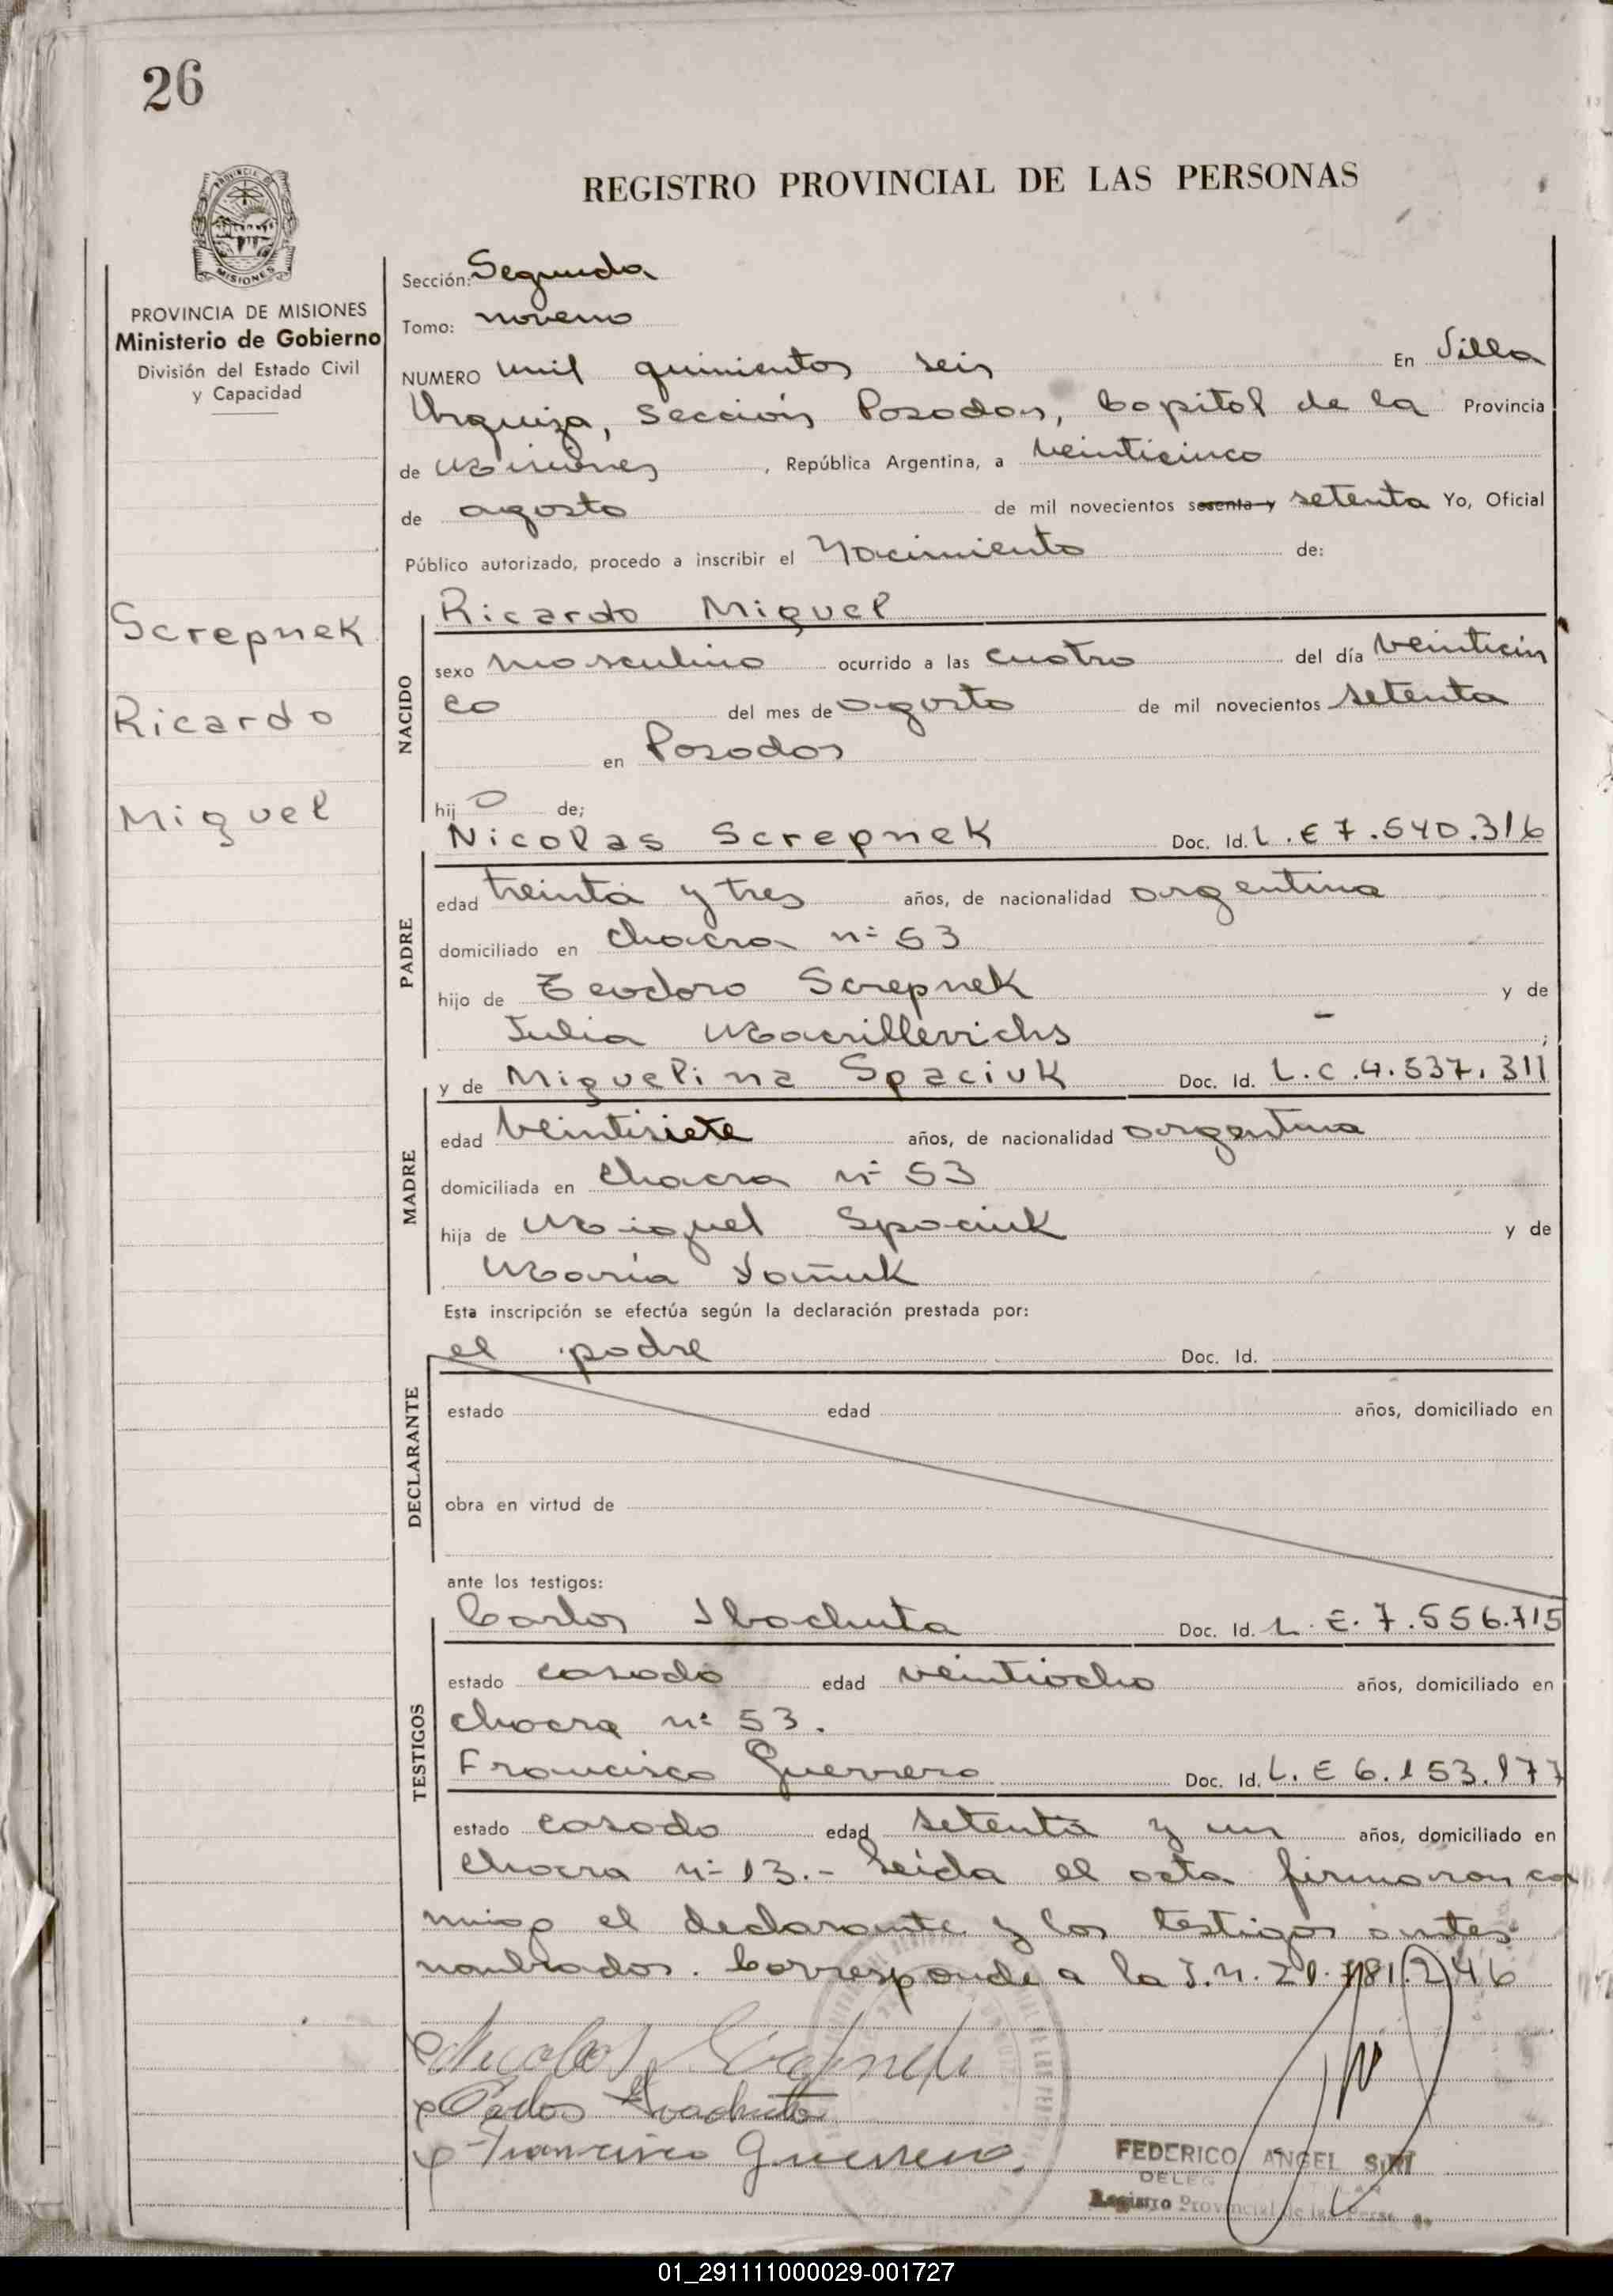 26
REGISTRO PROVINCIAL DE LAS PERSONAS
PROVINCIA DE MISIONES
MISIONES
PROVINCIA DE MISIONES
Ministerio de Gobierno
División del Estado Civil
y Capacidad
Screpnek
Ricardo
Miguel
Sección: Segunda
Tomo: noveno
NUMERO mil quinientos seis En Villa
Urquiza, Sección Posadas, Capital de la Provincia
de Misiones, República Argentina, a veinticinco
de agosto de mil novecientos sesenta y setenta Yo, Oficial
Público autorizado, procedo a inscribir el Nacimiento de:
NACIDO
Ricardo Miguel
sexo masculino ocurrido a las cuatro del día veinticin
co del mes de agosto de mil novecientos setenta
en Posadas
hij o de;
PADRE
Nicolas Screpnek Doc. Id. L.E 7.540.316
edad treinta y tres años, de nacionalidad argentina
domiciliado en chacra nº 53
hijo de Teodoro Screpnek y de
Julia ;
MADRE
y de Miguelina Spaciuk Doc. Id. L.C.4.537.311
edad veintisiete años, de nacionalidad argentina
domiciliada en chacra nº 53
hija de Miguel Spaciuk y de
María
Esta inscripción se efectúa según la declaración prestada por:
DECLARANTE
el padre Doc. Id.
estado edad años, domiciliado en
obra en virtud de
ante los testigos:
TESTIGOS
Carlos Doc. Id. L.E. 7.556.715
estado casado edad veintiocho años, domiciliado en
chacra nº 53.
Francisco Guerrero Doc. Id. L.E 6.153.177
estado casado edad setenta y un años, domiciliado en
chacra nº 13.- Leida el acta firmaron con
migo el declarante y los testigos antes
nombrados. Corresponde a la
Nicolas Screpnek
Carlos
Francisco Guerrero.
FEDERICO ANGEL
DELEG
Registro Provincial de las Perso
01_291111000029-001727